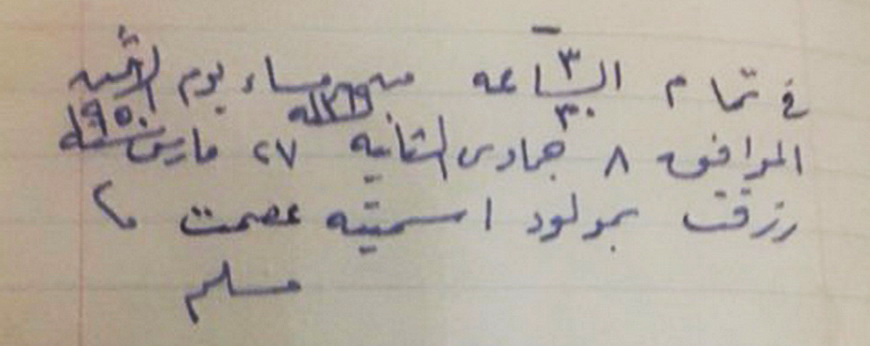 في تمام الساعه ٣ ٣٠ من مساء يوم الاثنين
الموافق ٨ جمادى الثانيه ١٣٦٩ ٢٧ مارس سنة ١٩٥٠
رزقت بمولود اسميته عصمت
مسلم